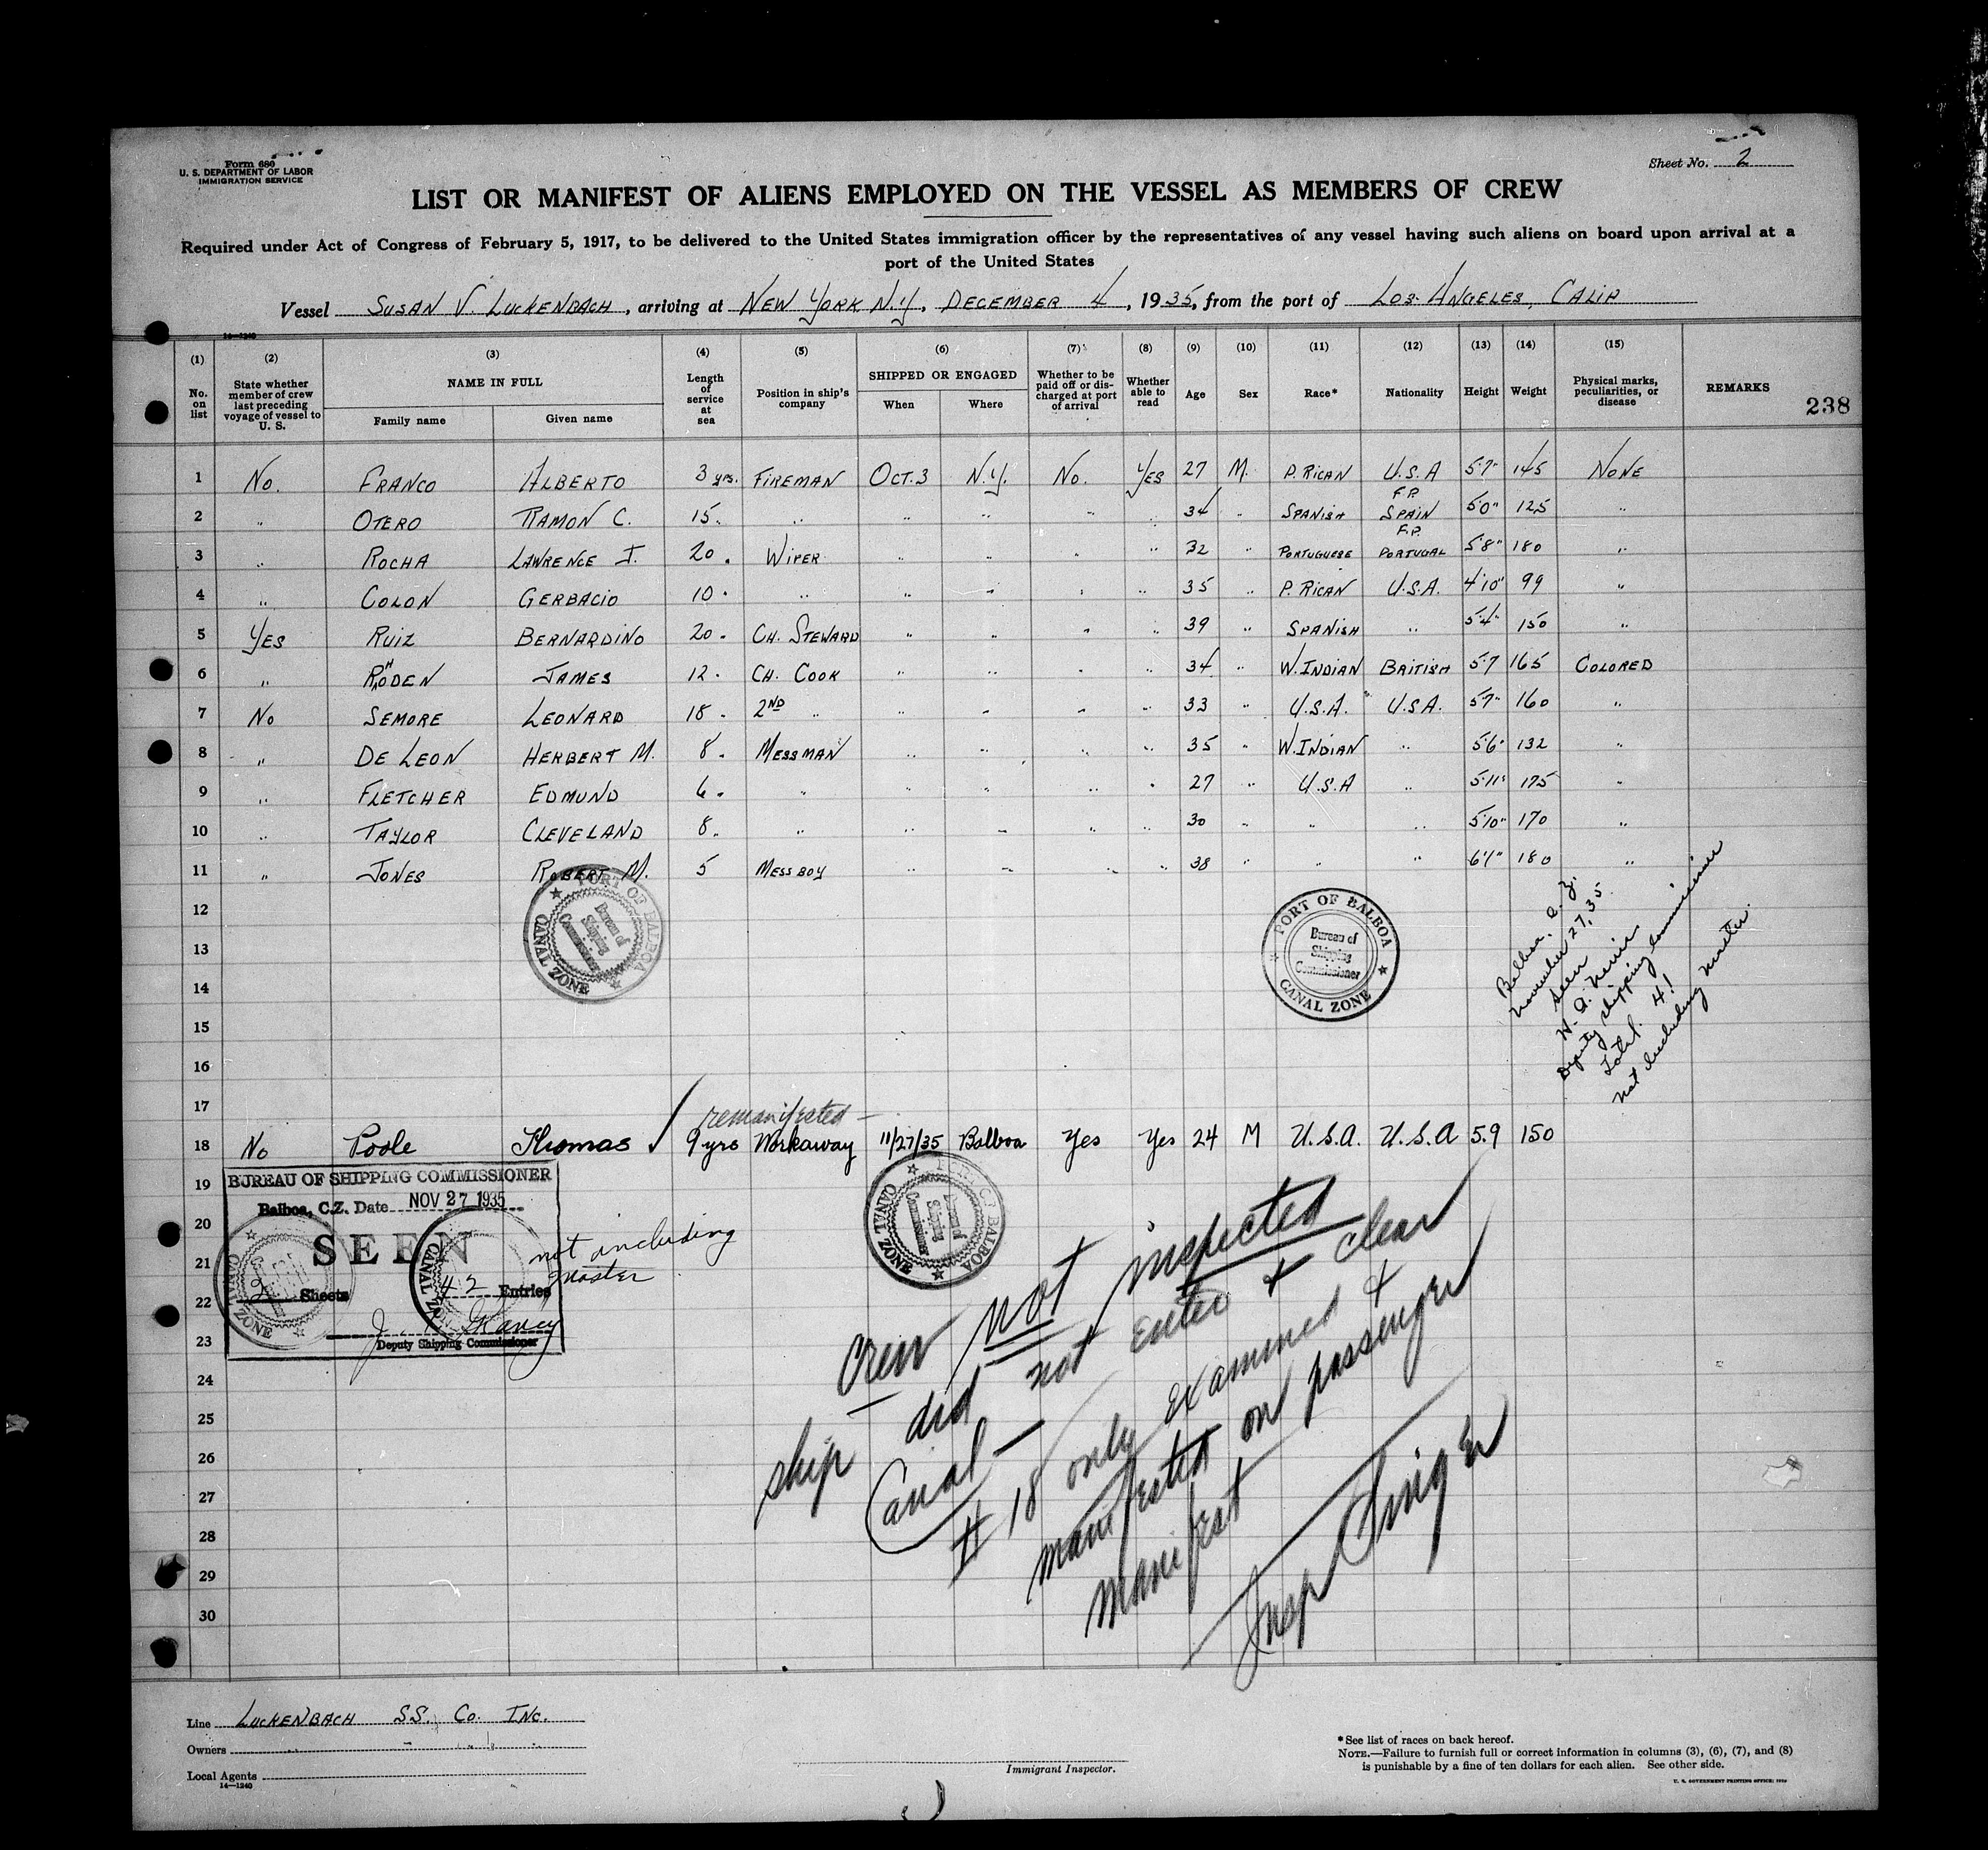 Form 680
U. S. DEPARTMENT OF LABOR
IMMIGRATION SERVICE
Sheet No. 2
LIST OR MANIFEST OF ALIENS EMPLOYED ON THE VESSEL AS MEMBERS OF CREW
Required under Act of Congress of February 5, 1917, to be delivered to the United States immigration officer by the representatives of any vessel having such aliens on board upon arrival at a
port of the United States
Vessel SUSAN V. LUCKENBACH, arriving at NEW YORK N.Y., DECEMBER 4, 1935, from the port of LOS ANGELES, CALIF
14—1240
(1) (2) (3) (4) (5) (6) (7) (8) (9) (10) (11) (12) (13) (14) (15)
No. on list State whether member of crew last preceding voyage of vessel to U. S. NAME IN FULL Family name Given name Length of service at sea Position in ship's company SHIPPED OR ENGAGED When Where Whether to be paid off or discharged at port of arrival Whether able to read Age Sex Race* Nationality Height Weight Physical marks, peculiarities, or disease REMARKS
238
1 No. FRANCO ALBERTO 3 yrs. FIREMAN OCT. 3 N.Y. No. YES 27 M. P. RICAN U.S.A 5'7" 145 NONE
F.P.
2 " OTERO RAMON C. 15 " " " " " " 34 " SPANISH SPAIN 5'0" 125 "
F.P.
3 " ROCHA LAWRENCE I. 20 " WIPER " " " " 32 " PORTUGUESE PORTUGAL 5'8" 180 "
4 " COLON GERBACIO 10 " " " " " " 35 " P. RICAN U.S.A. 4'10" 99 "
5 YES RUIZ BERNARDINO 20 " CH. STEWARD " " " " 39 " SPANISH " 5'4" 150 "
6 " RHODEN JAMES 12 " CH. COOK " " " " 34 " W. INDIAN BRITISH 5'7 165 COLORED
7 No SEMORE LEONARD 18 " 2ND " " " " " 33 " U.S.A. U.S.A. 5'7" 160 "
8 " DE LEON HERBERT M. 8 " MESSMAN " " " " 35 " W. INDIAN " 5'6" 132 "
9 " FLETCHER EDMUND 6 " " " " " " 27 " U.S.A " 5'11" 175 "
10 " TAYLOR CLEVELAND 8 " " " " " " 30 " " " 5'10" 170 "
11 " JONES ROBERT M. 5 MESSBOY " " " " 38 " " " 6'1" 180 "
12
13
14
15
16
17
PORT OF BALBOA
Bureau of
Shipping
Commissioner
CANAL ZONE
PORT OF BALBOA
Bureau of
Shipping
Commissioner
CANAL ZONE
Balboa, C.Z.
November 27, 35.
Seen
Deputy Shipping Commissioner
Total. 41
Not including master.
remanifested —
18 No Poole Thomas ✓ 9 yrs Workaway 11/27/35 Balboa Yes Yes 24 M U.S.A. U.S.A 5.9 150
19
20
21
22
23
24
25
26
27
28
29
30
BUREAU OF SHIPPING COMMISSIONER
Balboa, C.Z. Date NOV 27 1935
SEEN
2 Sheets 42 Entries
not including
master
Deputy Shipping Commissioner
CANAL ZONE
CANAL ZONE
PORT OF BALBOA
Bureau of
Shipping
Commissioner
CANAL ZONE
Crew not inspected
Ship did not enter & clear
Canal —
# 18 only examined &
manifested on passenger
manifest
Insp
Line LUCKENBACH SS. Co. INC.
Owners " " " "
Local Agents
14—1240
Immigrant Inspector.
*See list of races on back hereof.
NOTE.—Failure to furnish full or correct information in columns (3), (6), (7), and (8)
is punishable by a fine of ten dollars for each alien. See other side.
U. S. GOVERNMENT PRINTING OFFICE: